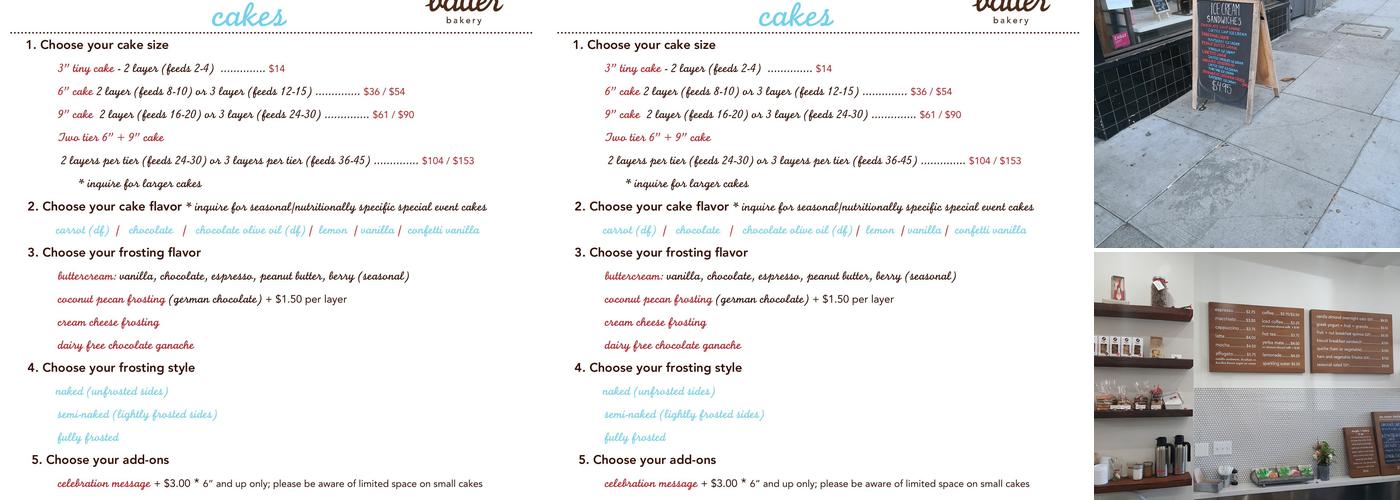 cakes
batter
bakery
1. Choose your cake size
3" tiny cake - 2 layer (feeds 2-4) .............. $14
6" cake 2 layer (feeds 8-10) or 3 layer (feeds 12-15) .............. $36 / $54
9" cake 2 layer (feeds 16-20) or 3 layer (feeds 24-30) .............. $61 / $90
Two tier 6" + 9" cake
2 layers per tier (feeds 24-30) or 3 layers per tier (feeds 36-45) .............. $104 / $153
* inquire for larger cakes
2. Choose your cake flavor * inquire for seasonal/nutritionally specific special event cakes
carrot (df) | chocolate | chocolate olive oil (df) | lemon | vanilla | confetti vanilla
3. Choose your frosting flavor
buttercream: vanilla, chocolate, espresso, peanut butter, berry (seasonal)
coconut pecan frosting (german chocolate) + $1.50 per layer
cream cheese frosting
dairy free chocolate ganache
4. Choose your frosting style
naked (unfrosted sides)
semi-naked (lightly frosted sides)
fully frosted
5. Choose your add-ons
celebration message + $3.00 * 6" and up only; please be aware of limited space on small cakes
cakes
batter
bakery
1. Choose your cake size
3" tiny cake - 2 layer (feeds 2-4) .............. $14
6" cake 2 layer (feeds 8-10) or 3 layer (feeds 12-15) .............. $36 / $54
9" cake 2 layer (feeds 16-20) or 3 layer (feeds 24-30) .............. $61 / $90
Two tier 6" + 9" cake
2 layers per tier (feeds 24-30) or 3 layers per tier (feeds 36-45) .............. $104 / $153
* inquire for larger cakes
2. Choose your cake flavor * inquire for seasonal/nutritionally specific special event cakes
carrot (df) | chocolate | chocolate olive oil (df) | lemon | vanilla | confetti vanilla
3. Choose your frosting flavor
buttercream: vanilla, chocolate, espresso, peanut butter, berry (seasonal)
coconut pecan frosting (german chocolate) + $1.50 per layer
cream cheese frosting
dairy free chocolate ganache
4. Choose your frosting style
naked (unfrosted sides)
semi-naked (lightly frosted sides)
fully frosted
5. Choose your add-ons
celebration message + $3.00 * 6" and up only; please be aware of limited space on small cakes
ICE CREAM
SANDWICHES
$4.95
espresso
macchiato
cappuccino
latte
mocha
affogato
coffee
iced coffee
hot tea
yerba mate
lemonade
sparkling water